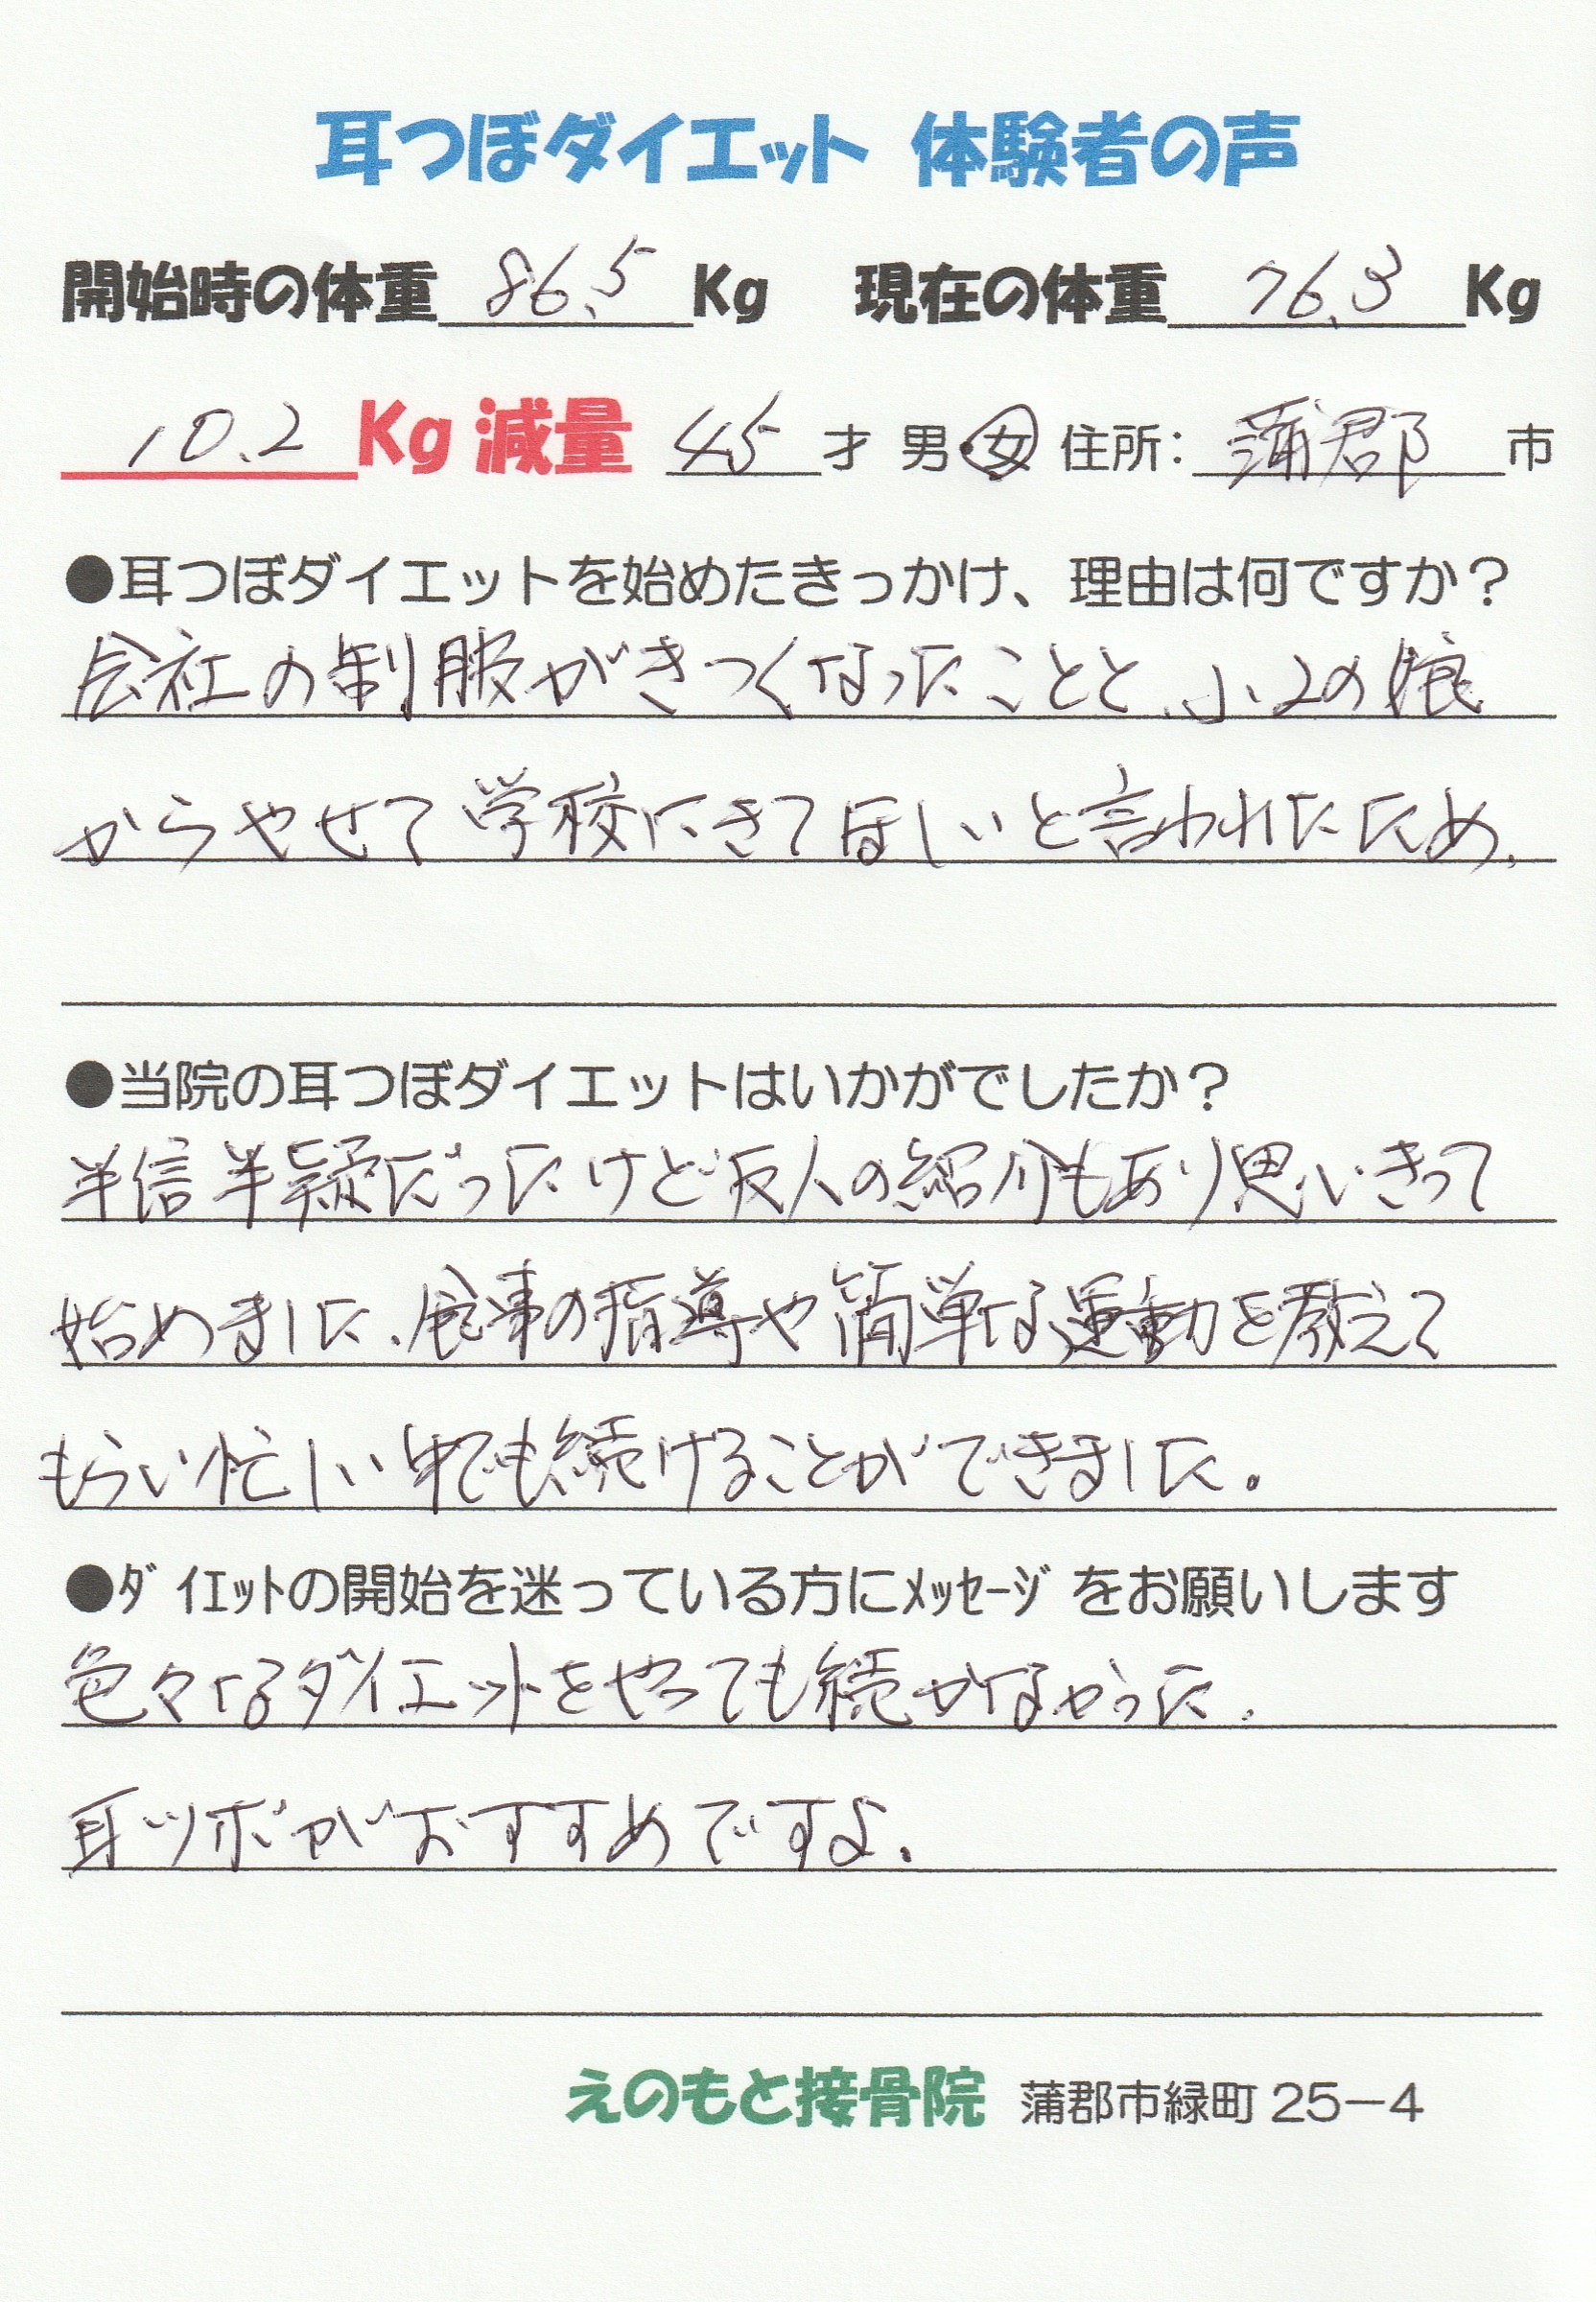 耳つぼダイエット 体験者の声
開始時の体重 86.5 Kg 現在の体重 76.3 Kg
10.2 Kg 減量 45 才 男・女 住所: 蒲郡 市
●耳つぼダイエットを始めたきっかけ、理由は何ですか?
会社の制服がきつくなったことと、小2の娘
からやせて学校にきてほしいと言われたため、
●当院の耳つぼダイエットはいかがでしたか?
半信半疑だったけど友人の紹介もあり思いきって
始めました、食事の指導や簡単な運動を教えて
もらい忙しい中でも続けることができました。
●ダイエットの開始を迷っている方にメッセージをお願いします
色々なダイエットをやっても続かなかった、
耳ツボがおすすめですよ。
えのもと接骨院 蒲郡市緑町25-4